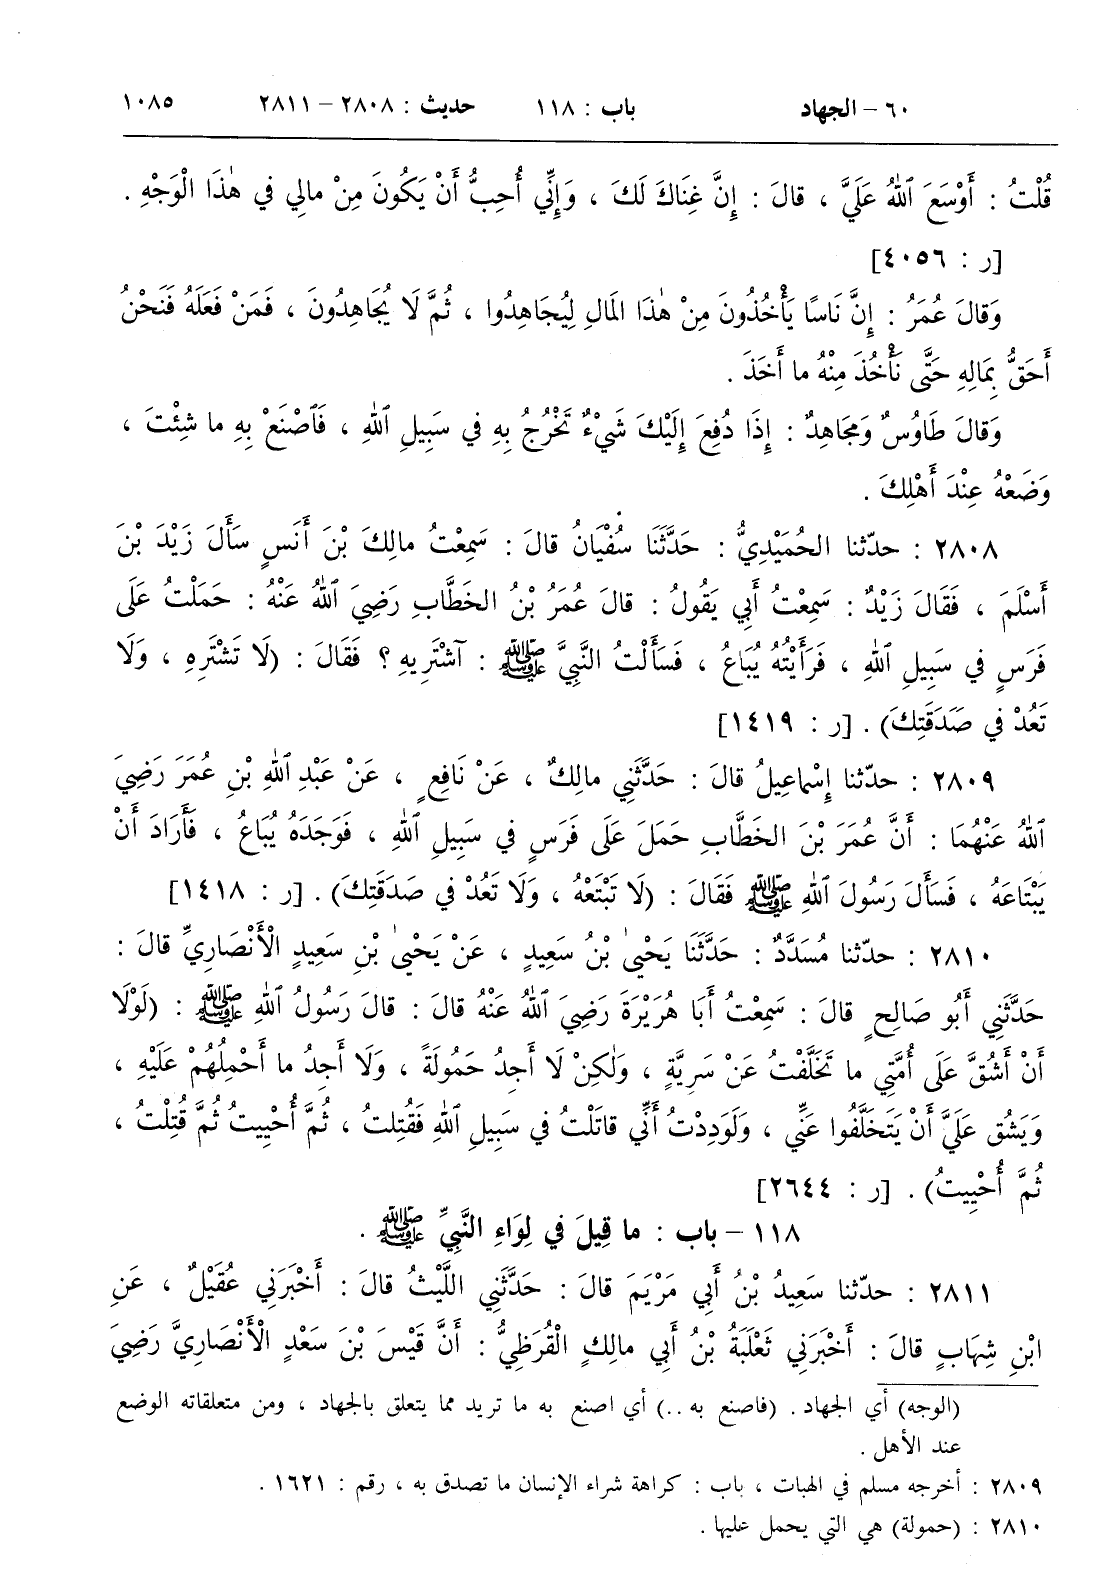 ٦٠ – الجهاد باب : ١١٨ حديث : ٢٨٠٨ – ٢٨١١ ١٠٨٥
قُلْتُ : أَوْسَعَ ٱللهُ عَلَيَّ ، قالَ : إِنَّ غِنَاكَ لَكَ ، وَإِنِّي أُحِبُّ أَنْ يَكُونَ مِنْ مالِي في هٰذَا الْوَجْهِ .
[ر : ٤٠٥٦]
وَقالَ عُمَرُ : إِنَّ نَاسًا يَأْخُذُونَ مِنْ هٰذَا المَالِ لِيُجَاهِدُوا ، ثُمَّ لَا يُجَاهِدُونَ ، فَمَنْ فَعَلَهُ فَنَحْنُ
أَحَقُّ بِمَالِهِ حَتَّى نَأْخُذَ مِنْهُ ما أَخَذَ .
وَقالَ طَاوُسٌ وَمُجَاهِدٌ : إِذَا دُفِعَ إِلَيْكَ شَيْءٌ تَخْرُجُ بِهِ في سَبِيلِ ٱللهِ ، فَٱصْنَعْ بِهِ ما شِئْتَ ،
وَضَعْهُ عِنْدَ أَهْلِكَ .
٢٨٠٨ : حدّثنا الحُمَيْدِيُّ : حَدَّثَنَا سُفْيَانُ قالَ : سَمِعْتُ مالِكَ بْنَ أَنَسٍ سَأَلَ زَيْدَ بْنَ
أَسْلَمَ ، فَقَالَ زَيْدٌ : سَمِعْتُ أَبِي يَقُولُ : قالَ عُمَرُ بْنُ الخَطَّابِ رَضِيَ ٱللهُ عَنْهُ : حَمَلْتُ عَلَى
فَرَسٍ في سَبِيلِ ٱللهِ ، فَرَأَيْتُهُ يُبَاعُ ، فَسَأَلْتُ النَّبِيَّ ﷺ : آشْتَرِيهِ ؟ فَقَالَ : (لَا تَشْتَرِهِ ، وَلَا
تَعُدْ في صَدَقَتِكَ) . [ر : ١٤١٩]
٢٨٠٩ : حدّثنا إِسْماعِيلُ قالَ : حَدَّثَنِي مالِكٌ ، عَنْ نَافِعٍ ، عَنْ عَبْدِ ٱللهِ بْنِ عُمَرَ رَضِيَ
ٱللهُ عَنْهُمَا : أَنَّ عُمَرَ بْنَ الخَطَّابِ حَمَلَ عَلَى فَرَسٍ في سَبِيلِ ٱللهِ ، فَوَجَدَهُ يُبَاعُ ، فَأَرَادَ أَنْ
يَبْتَاعَهُ ، فَسَأَلَ رَسُولَ ٱللهِ ﷺ فَقَالَ : (لَا تَبْتَعْهُ ، وَلَا تَعُدْ في صَدَقَتِكَ) . [ر : ١٤١٨]
٢٨١٠ : حدّثنا مُسَدَّدٌ : حَدَّثَنَا يَحْيىٰ بْنُ سَعِيدٍ ، عَنْ يَحْيىٰ بْنِ سَعِيدٍ الْأَنْصَارِيِّ قالَ :
حَدَّثَنِي أَبُو صَالِحٍ قالَ : سَمِعْتُ أَبَا هُرَيْرَةَ رَضِيَ ٱللهُ عَنْهُ قالَ : قالَ رَسُولُ ٱللهِ ﷺ : (لَوْلَا
أَنْ أَشُقَّ عَلَى أُمَّتِي ما تَخَلَّفْتُ عَنْ سَرِيَّةٍ ، وَلٰكِنْ لَا أَجِدُ حَمُولَةً ، وَلَا أَجِدُ ما أَحْمِلُهُمْ عَلَيْهِ ،
وَيَشُق عَلَيَّ أَنْ يَتَخَلَّفُوا عَنِّي ، وَلَوَدِدْتُ أَنِّي قاتَلْتُ في سَبِيلِ ٱللهِ فَقُتِلتُ ، ثُمَّ أُحْيِيتُ ثُمَّ قُتِلْتُ ،
ثُمَّ أُحْيِيتُ) . [ر : ٢٦٤٤]
١١٨ – باب : ما قِيلَ في لِوَاءِ النَّبِيِّ ﷺ .
٢٨١١ : حدّثنا سَعِيدُ بْنُ أَبِي مَرْيَمَ قالَ : حَدَّثَنِي اللَّيْثُ قالَ : أَخْبَرَنِي عُقَيْلٌ ، عَنِ
ابْنِ شِهَابٍ قالَ : أَخْبَرَنِي ثَعْلَبَةُ بْنُ أَبِي مالِكٍ الْقُرَظِيُّ : أَنَّ قَيْسَ بْنَ سَعْدٍ الْأَنْصَارِيَّ رَضِيَ
(الوجه) أي الجهاد . (فاصنع به ..) أي اصنع به ما تريد مما يتعلق بالجهاد ، ومن متعلقاته الوضع
عند الأهل .
٢٨٠٩ : أخرجه مسلم في الهبات ، باب : كراهة شراء الإنسان ما تصدق به ، رقم : ١٦٢١ .
٢٨١٠ : (حمولة) هي التي يحمل عليها .